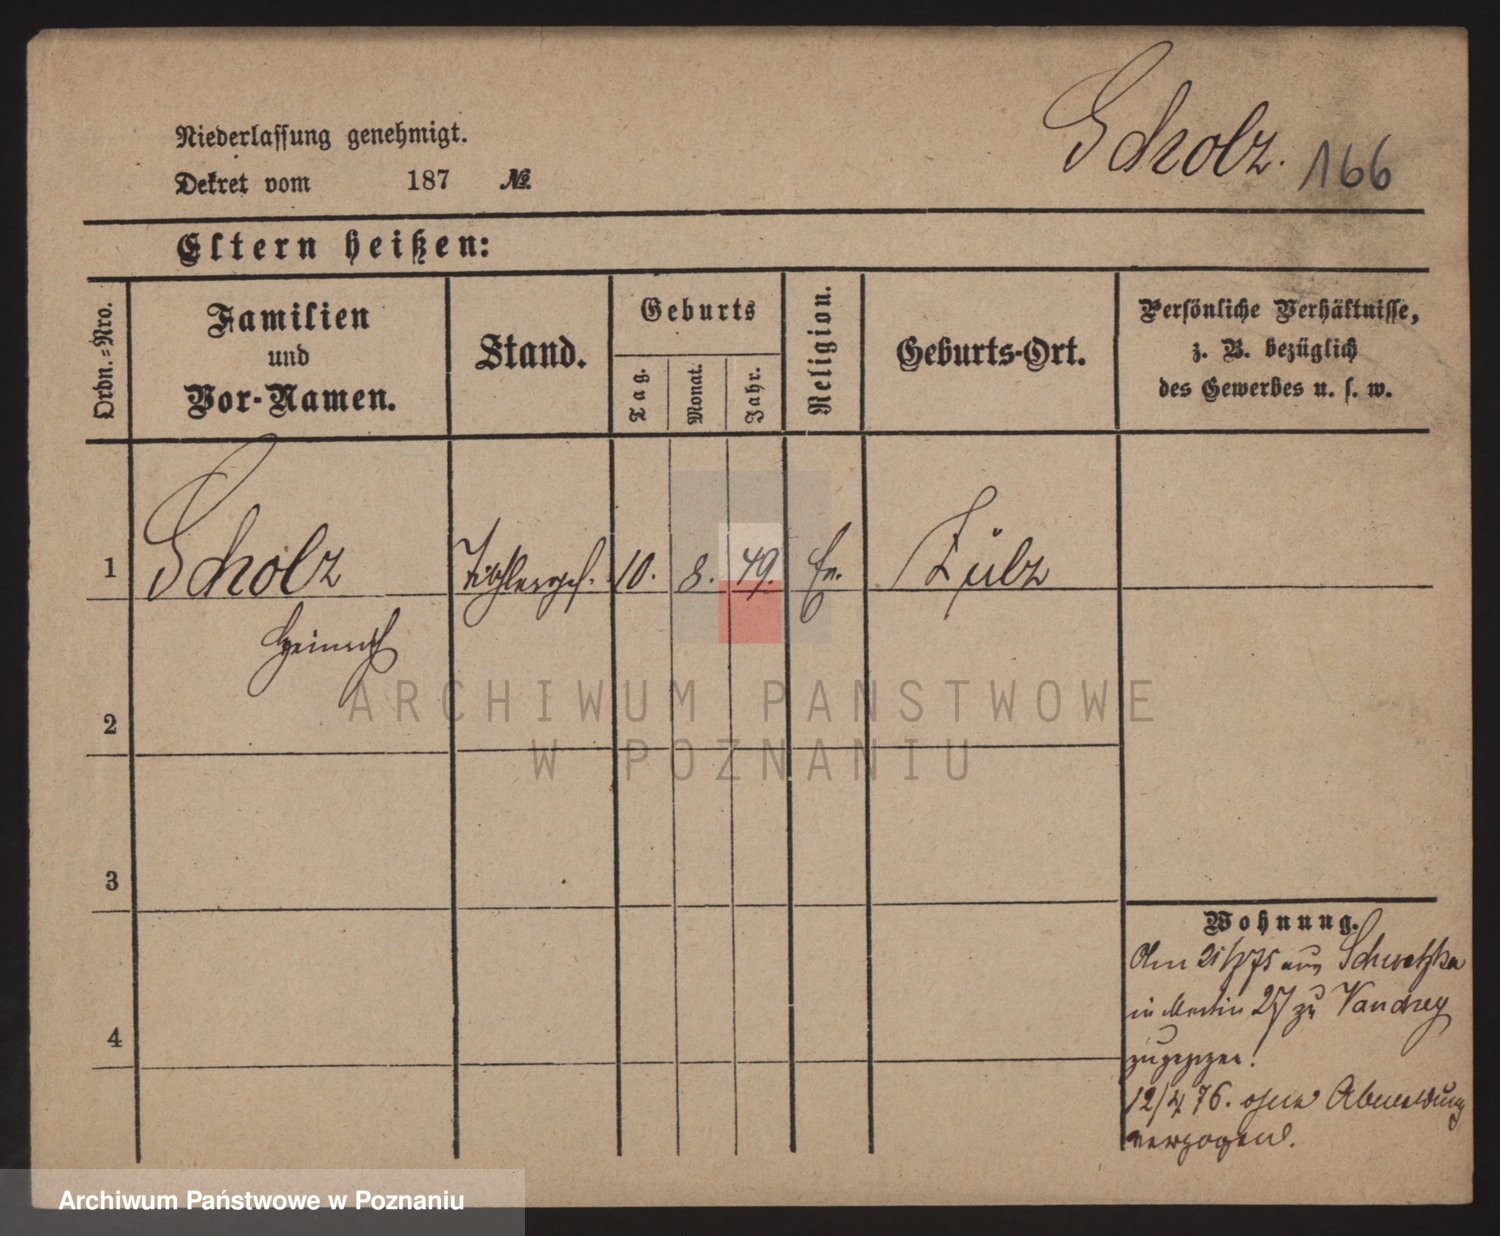 Scholz. 166
Niederlassung genehmigt.
Dekret vom 187 №
Eltern heißen:
Ordn.=Nro.
Familien
und
Vor-Namen.
Stand.
Geburts
Tag.
Monat.
Jahr.
Religion.
Geburts-Ort.
Persönliche Verhältnisse,
z. B. bezüglich
des Gewerbes u. s. w.
1 Scholz Tischlerges. 10. 8. 49. Ev. Zülz
Heinrich
2
3
4
Wohnung.
Am 21/ 75 aus
in 27 zu Vandrey
zugezogen.
12/4 76. ohne Abmeldung
verzogen.
ARCHIWUM PANSTWOWE
W POZNANIU
Archiwum Państwowe w Poznaniu